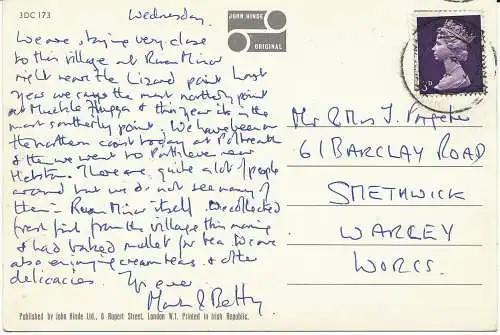 3DC 173
JOHN HINDE
ORIGINAL
Wednesday.
We are staying very close
to this village at Ruan Minor
right near the Lizard point. Last
year we saw the most northerly point
at Muckle Flugga & this year it's the
most southerly point. We have been on
the northern coast today at Portreath
& then we went to Porthleven near
Helston. There are quite a lot of people
around but we do not see many of
them in Ruan Minor itself. We collected
fresh fish from the village this morning
& had baked mullet for tea. We are
also enjoying cream teas & other
delicacies. Yrs ever
& Betty
Mr & Mrs J.
61 BARCLAY ROAD
SMETHWICK
WARLEY
WORCS.
Published by John Hinde Ltd., 6 Rupert Street, London W.1. Printed in Irish Republic.